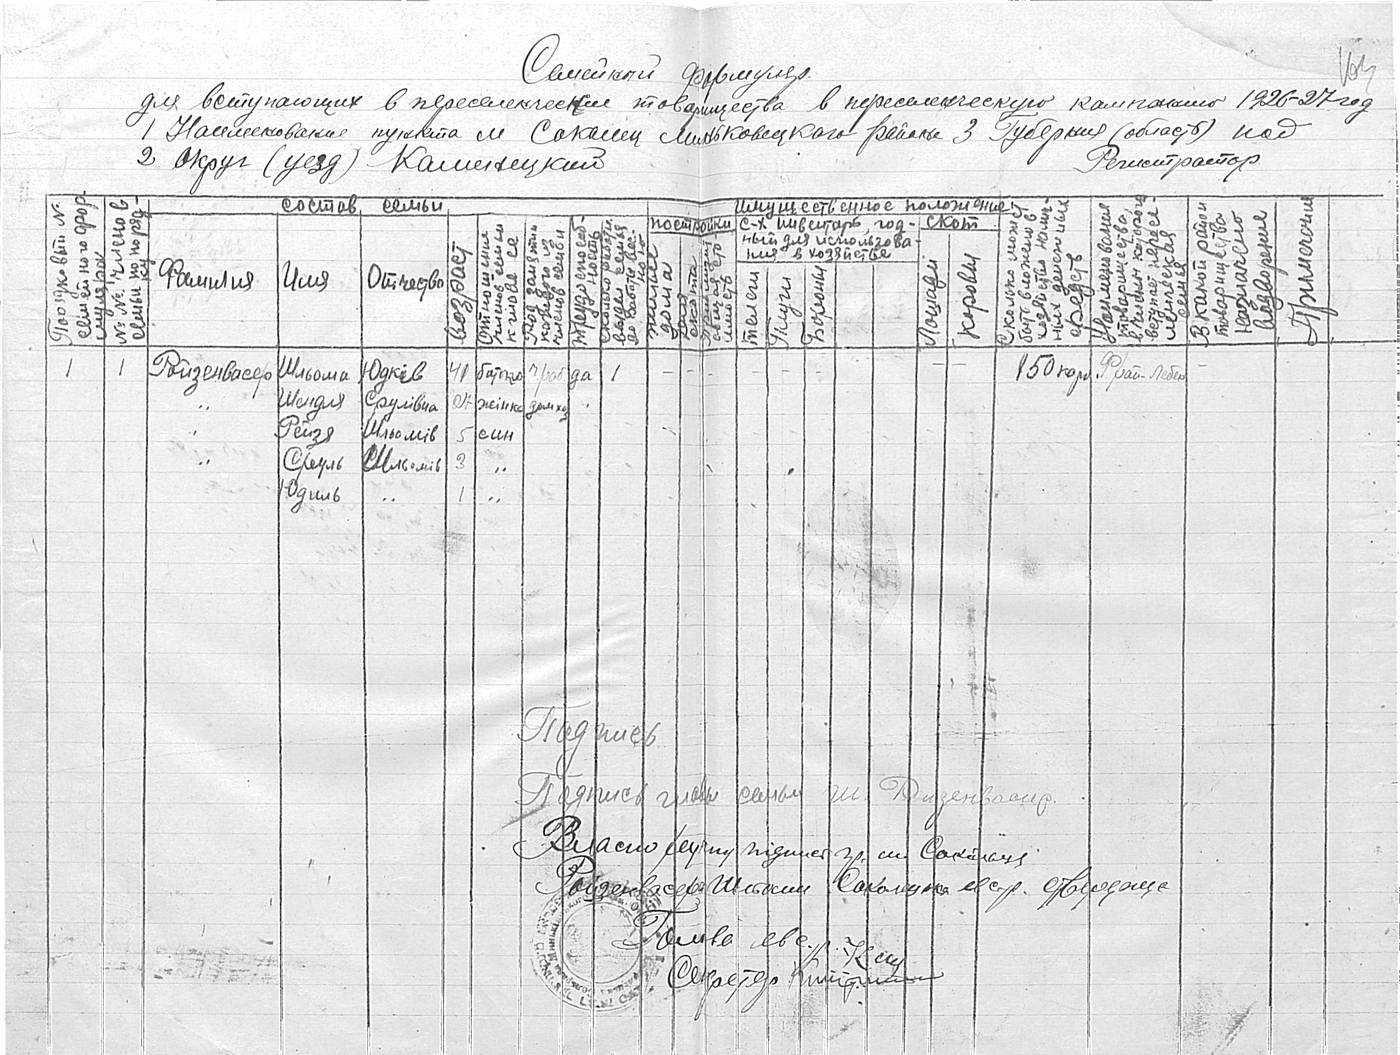 Семейный формуляр
для вступающих в переселенческие товарищества в переселенческую кампанию 1926-27 год
1 Наименование пункта м Соколец Миньковецкого района 3 Губерния (область) под
2 Округ (уезд) Каменецкий Регистратор
Порядковый № семейного формуляра
№№ членов семьи по порядку
состав семьи
Фамилия
Имя
Отчество
возраст
Отношение членов семьи к главе ее
Род занятий каждого из членов семьи
Трудоспособность
имущественное положение
постройки
жилые дома
Для скота
с-х инвентарь, годный для использования в хозяйстве
телеги
Плуги
Бороны
скот
Лошади
коровы
Сколько может быть вложено в хозяйство наличных денежных средств
Наименования товарищества, в члены которого вступает переселенческая семья
В какой район товарищества намечено водворение
Примечания
1 1 Ройзенвасер Шльома Юдков 41 батько да 1 150 карб Фрай-Лебен
" Шендля Срулівна 27 жінка домхоз
" Рейзя Шльомів 5 син
" Сруль Шльомів 3 "
Юдиль " 1 "
Подпись
Подпись главы семьи Ш.
Власноручну підпис гр. м. Сокільця
Ройзенвасера Шльоми
Голова
Секретар